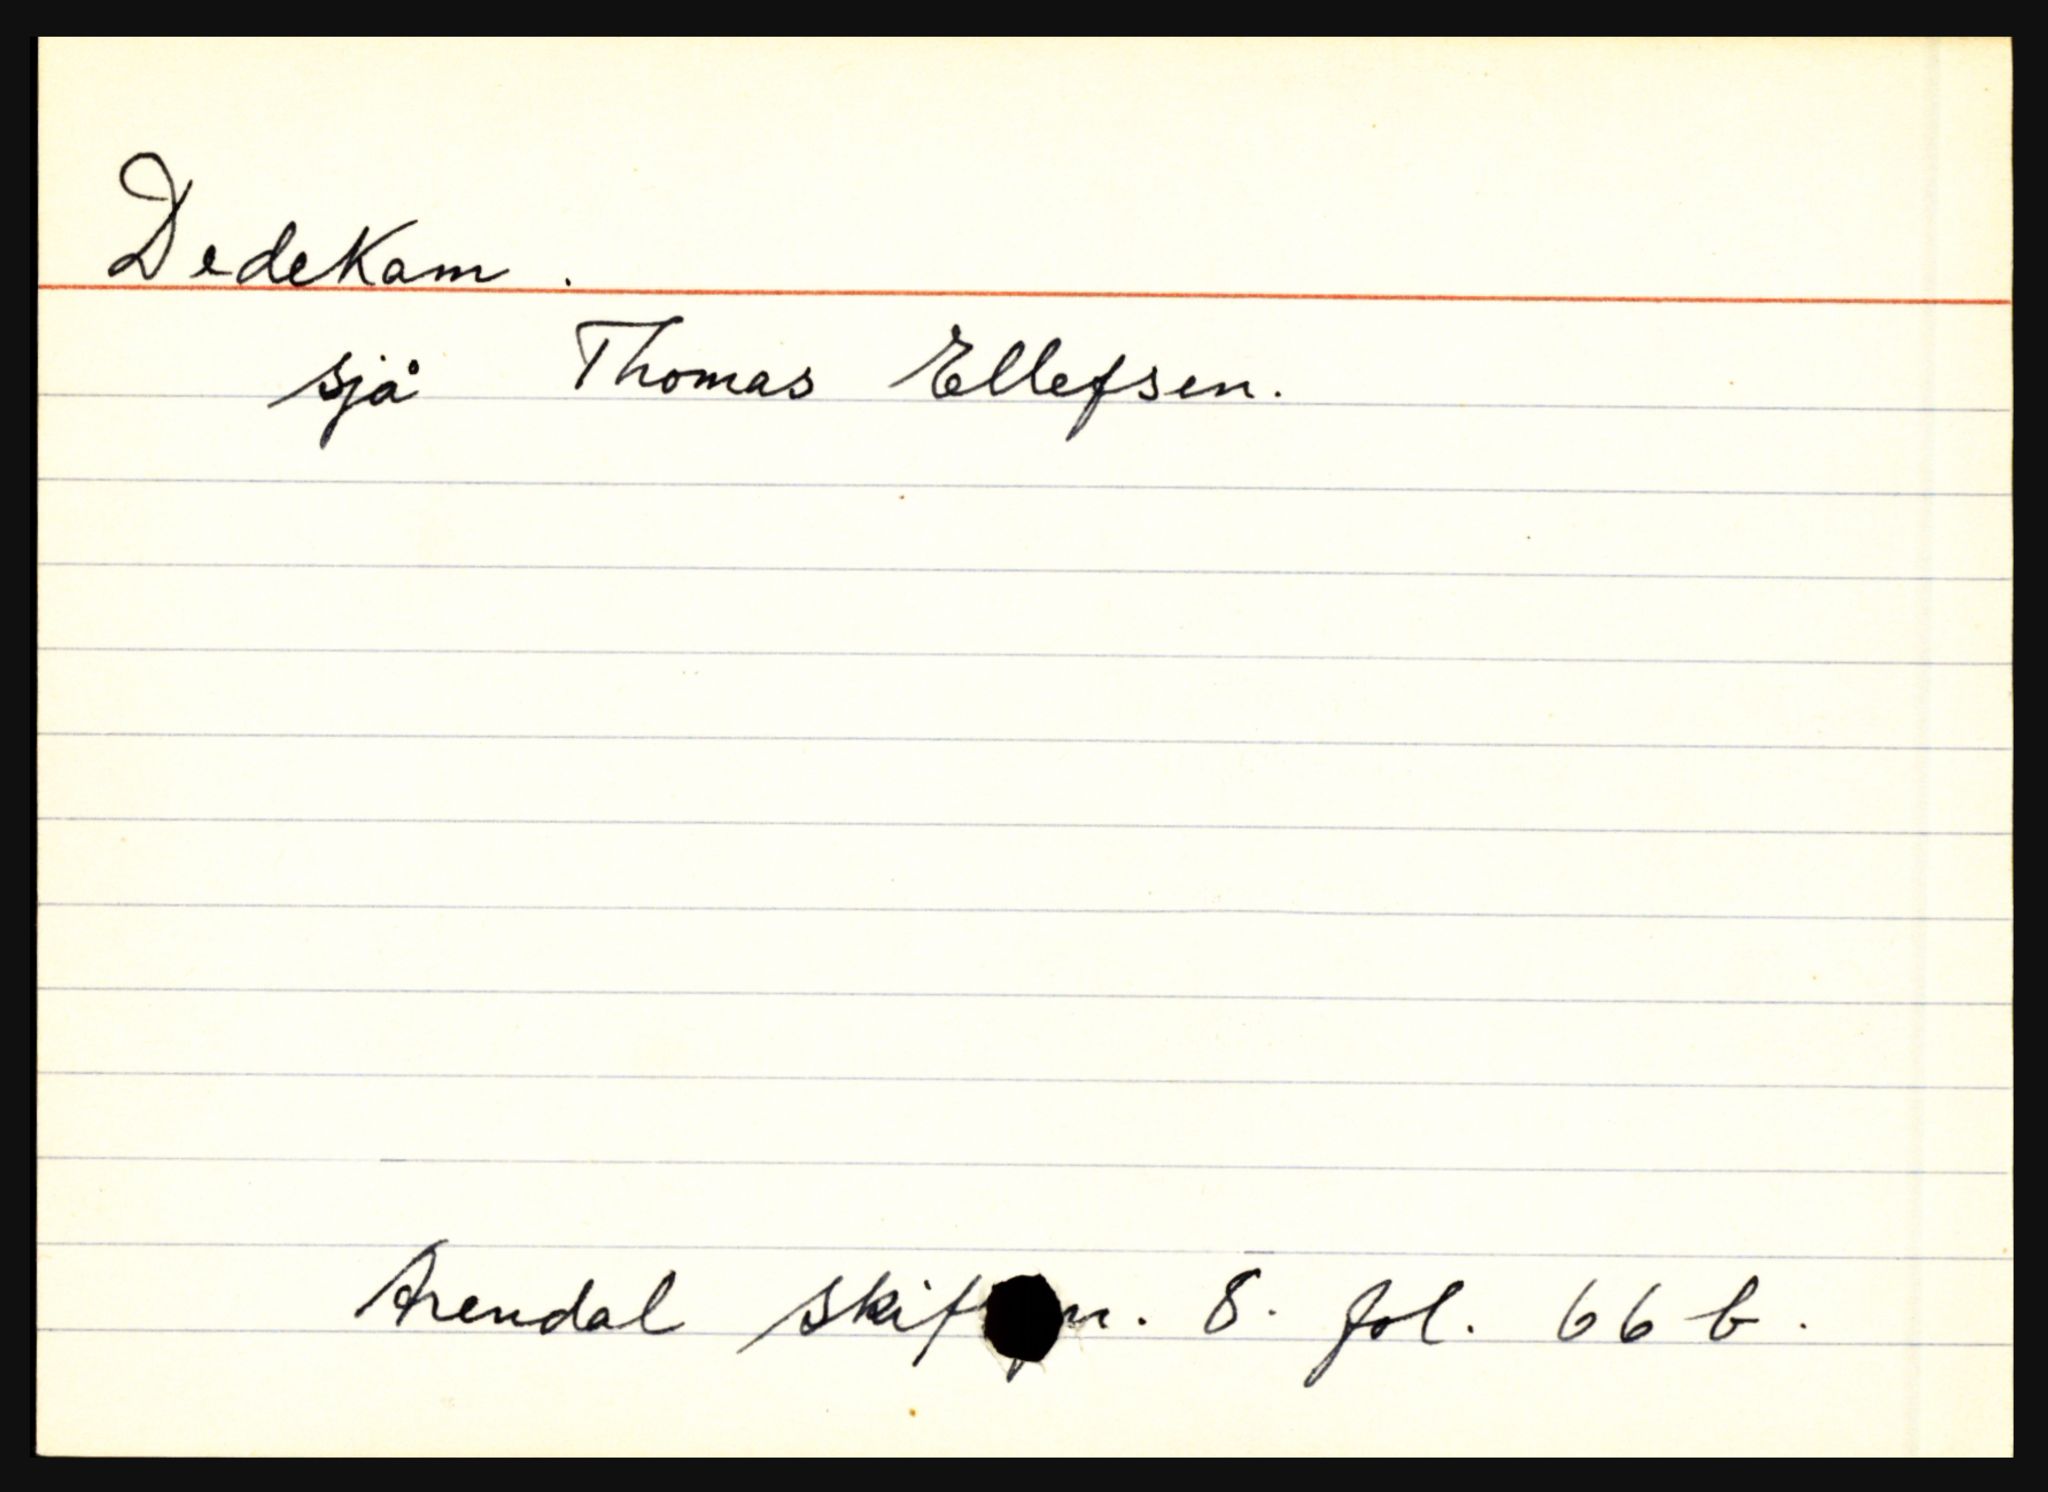 Dedekam.
sjå Thomas Ellefsen.
Arendal 8. fol. 66 b.